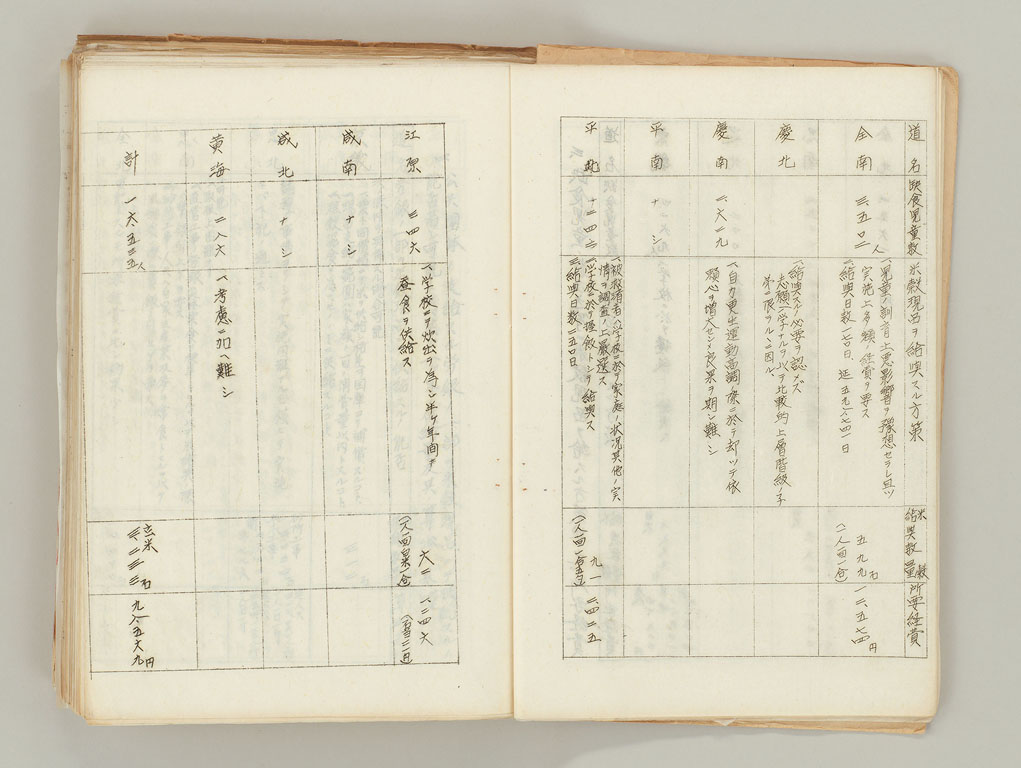 道名
欠食児童数
米穀現品ヲ給与スル方策
米穀給与数量
所要経費
全南
三、五〇二人
一、児童ノ訓育上悪影響ヲ予想セラレ且ツ
実施上多額ノ経費ヲ要ス
二、給与日数一七〇日、延五九八、七四一日
五九九石
(一人一回一合)
一三、五七四円
慶北
一、給与スルノ必要ヲ認メズ
志願入学ナルヲ以テ比較的上層階級ノ子
弟ニ限ラルルニ因ル、
慶南
一、六二九
一、自力更生運動高調ノ際ニ於テ却ツテ依
頼心ヲ増大セシメ良果ヲ期シ難シ
平南
ナシ
平北
一、被救済者ハ学校ニ於テ家庭ノ状況其他ノ実
情ヲ調査ノ上厳選ス
二、学校ニ於テ握飯トシテ給与ス
三、給与日数二五〇日
九一
二四二五
江原
三四六
一、学校ニテ炊出ヲ為シ半ケ年間ヲ
昼食ヲ供給ス
六二
一、二四六
咸南
ナシ
咸北
ナシ
黄海
二八六
一、考慮ニ加ヘ難シ
計
一六、五三五人
玄米
三、二三三石
九八、五六九円